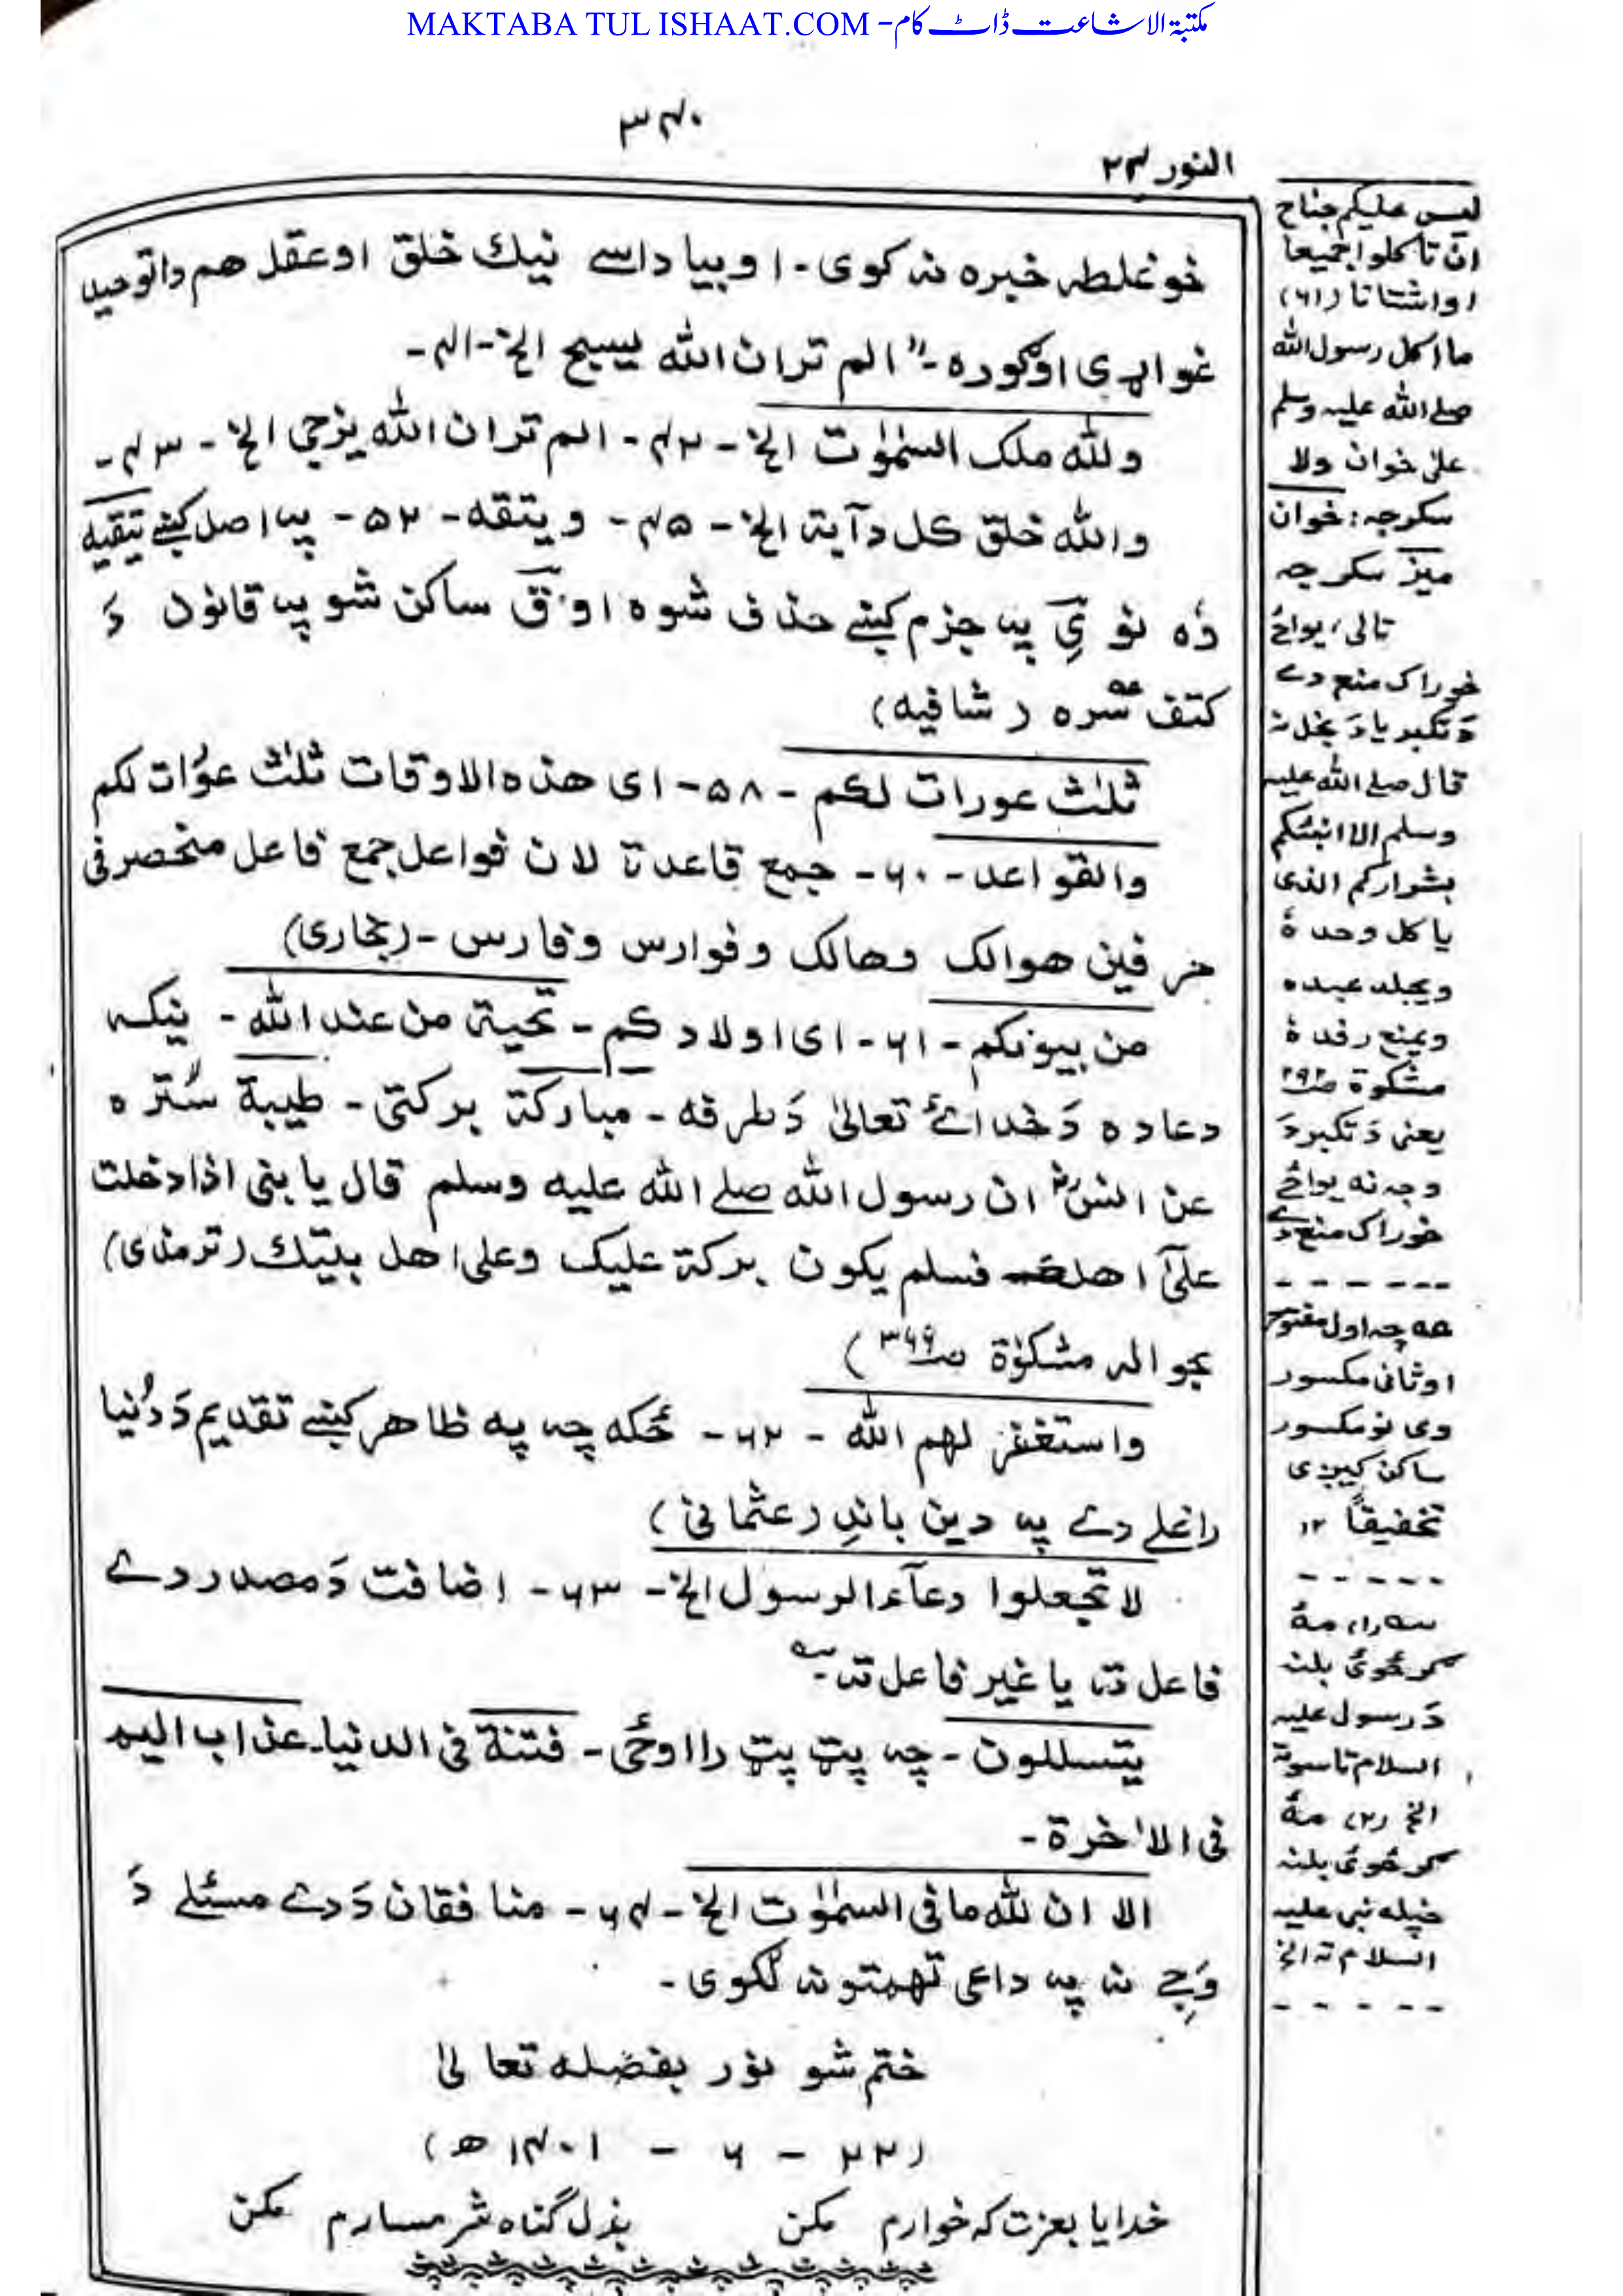 MAKTABA TUL ISHAAT.COM -مکتبۃ الاشاعت ڈاٹ کام
۳۴۰
النور ۲۴
خو غلطہ خبره نہ کوی - او بیا داسے نیک خلق او عقل هم دا توحید
غواړی او ګوره - "الم تر ان الله یسبح الخ - ۴۱ -
ولله ملک السمٰوٰت الخ - ۴۲ - الم تر ان الله یزجی الخ - ۴۳ -
والله خلق کل دآبة الخ - ۴۵ - ویتقه - ۵۲ - پہ اصل کښے یتقیه
وُه نو یِ پہ جزم کښے حذف شوه او ق ساکن شو پہ قانون دَ
کتف سره (شافیه)
ثلٰث عورات لکم - ۵۸ - ای هذه الاوقات ثلٰث عوُرات لکم
والقواعد - ۶۰ - جمع قاعدة لان فواعل جمع فاعل منحصر فی
حرفین هوالک وهالک وفوارس وفارس - (بخاری)
من بیوتکم - ۶۱ - ای اولادکم - تحیة من عند الله - نیکہ
دعا ده دَ خدائے تعالیٰ دَ طرفه - مبارکة برکتی - طیبة سُتره
عن انسؓ ان رسول الله صلے الله علیه وسلم قال یا بنی اذا دخلت
علیٰٓ اهلک فسلم یکون برکة علیک وعلی اهل بیتک (ترمذی)
بحوالہ مشکوٰة ص۳۹۹)
واستغفر لهم الله - ۶۲ - ځکه چہ په ظاهر کښے تقدیم دَ دُنیا
راغلے دے پہ دین باندِ (عثمانی)
لا تجعلوا دعآء الرسول الخ - ۶۳ - اضافت دَ مصدر دے
فاعل تہ یا غیر فاعل تہ -
یتسللون - چہ پټ پټ را اوځی - فتنة فی الدنیا - عذاب الیم
فی الاٰخرة -
الا ان لله ما فی السمٰوٰت الخ - ۶۴ - منافقان دَ دے مسئلے دَ
وَجِے نہ پہ داعی تهمتونہ لګوی -
ختم شو نور بفضله تعالیٰ
(۲۲ - ۶ - ۱۴۰۱ ھ)
خدایا بعزت کہ خوارم مکن بذل گناه شرمسارم مکن
لیس علیکم جناح
ان تاکلوا جمیعا
او اشتاتا (۶۱)
ما اکل رسول الله
صلے الله علیه وسلم
علیٰ خوان ولا
سکرجہ: خوان
میز سکرجہ
تالی، یواځے
خوراک منع دے
دَ تکبر یا دَ بخل نہ
قال صلے الله علیه
وسلم الا انبئکم
بشرارکم الذی
یاکل وحدهٗ
ویجلد عبده
ویمنع رفدهٗ
مشکوة ص۲۹۲
یعنی دَ تکبر دَ
وجہ نه یواځے
خوراک منع دے
چہ اول مفتوح
او ثانی مکسور
وی نو مکسور
ساکن کیږی
تخفیفاً ۱۲
(۱) مهٔ
ګرځوئ بلنہ
دَ رسول علیه
السلام تاسوتہ
الخ (۲) مهٔ
ګرځوئ بلنہ
خپله نبی علیه
السلام تہ الخ